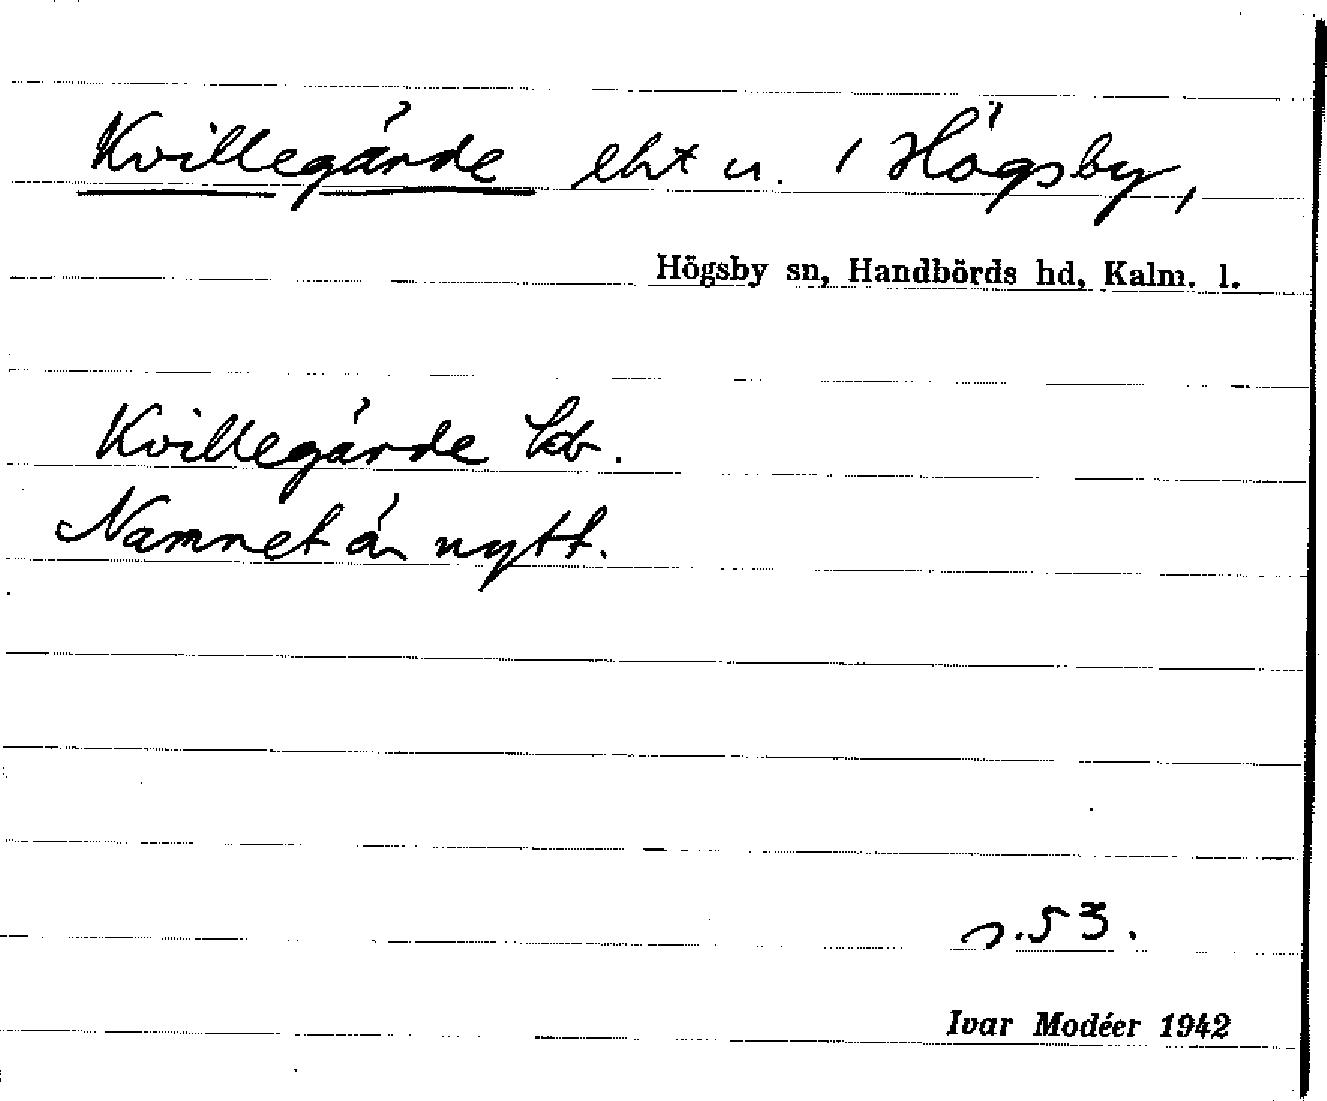 Kvillegärde eht u. i Högsby,
Högsby sn, Handbörds hd, Kalm. l.
Kvillegärde kb.
Namnet är nytt.
s. 53.
Ivar Modéer 1942